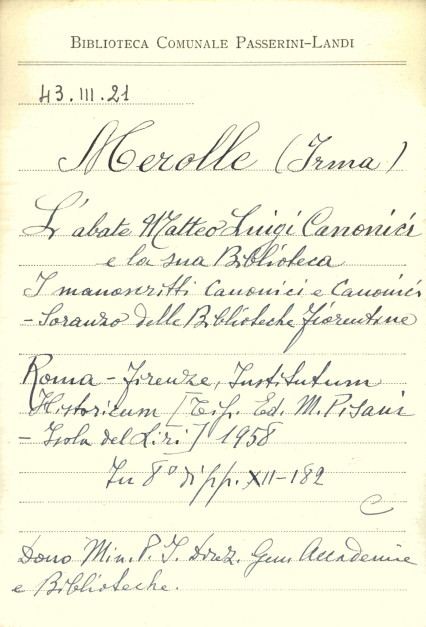 BIBLIOTECA COMUNALE PASSERINI-LANDI
43.III.21
Merolle (Irma)
L'abate Matteo Luigi Canonici
e la sua Biblioteca
I manoscritti Canonici e Canonici
- Soranzo delle Biblioteche Fiorentine
Roma - Firenze, Institutum
Historicum [Tip. Ed. M. Pisani
- Isola del Liri] 1958
In 8° di pp. XII-182
C
Dono Min. P. I. Direz. Gen. Accademie
e Biblioteche.